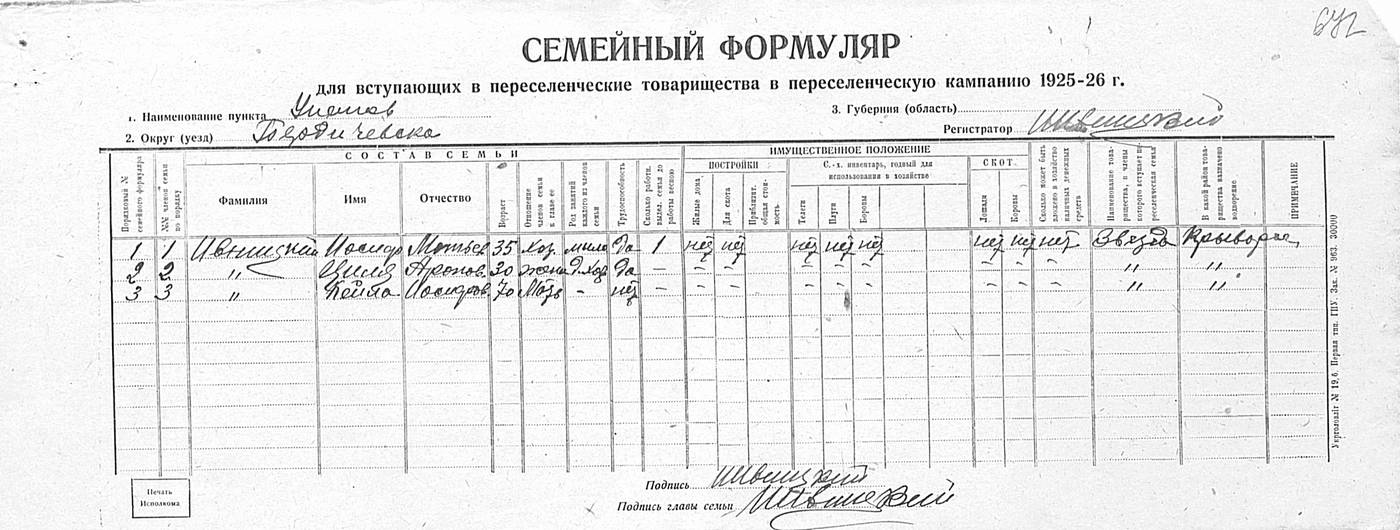 672
СЕМЕЙНЫЙ ФОРМУЛЯР
для вступающих в переселенческие товарищества в переселенческую кампанию 1925-26 г.
1. Наименование пункта
3. Губерния (область)
2. Округ (уезд)
Регистратор
СОСТАВ СЕМЬИ
ИМУЩЕСТВЕННОЕ ПОЛОЖЕНИЕ
Порядковый № семейного формуляра
№№ членов семьи по порядку
Фамилия
Имя
Отчество
Возраст
Отношение членов семьи к главе ее
Род занятий каждого из членов семьи
Трудоспособность
Сколько работн. выдел. семья до работы весною
ПОСТРОЙКИ
Жилые дома
Для скота
Приблизит. общая стоимость
С.-х. инвентарь, годный для использования в хозяйстве
Телеги
Плуги
Бороны
СКОТ
Лошади
Коровы
Сколько может быть вложено в хозяйство наличных денежных средств
Наименование товарищества, в члены которого вступает переселенческая семья
В какой район товарищества назначено водворение
ПРИМЕЧАНИЕ
1 1 Ивницкий Иосиф 35 Хоз. Да 1 нет нет нет нет нет нет нет нет Звезда
2 2 " Циля Аронов. 30 жена Да - - - - - - - - - " "
3 3 " Иосифов. 70 - нет - - - - - - - - - " "
Подпись Ивницкий
Подпись главы семьи Ивницкий
Печать
Исполкома
Укрголовліт № 19,6. Первая тип. ГПУ. Зак. № 963. 30000